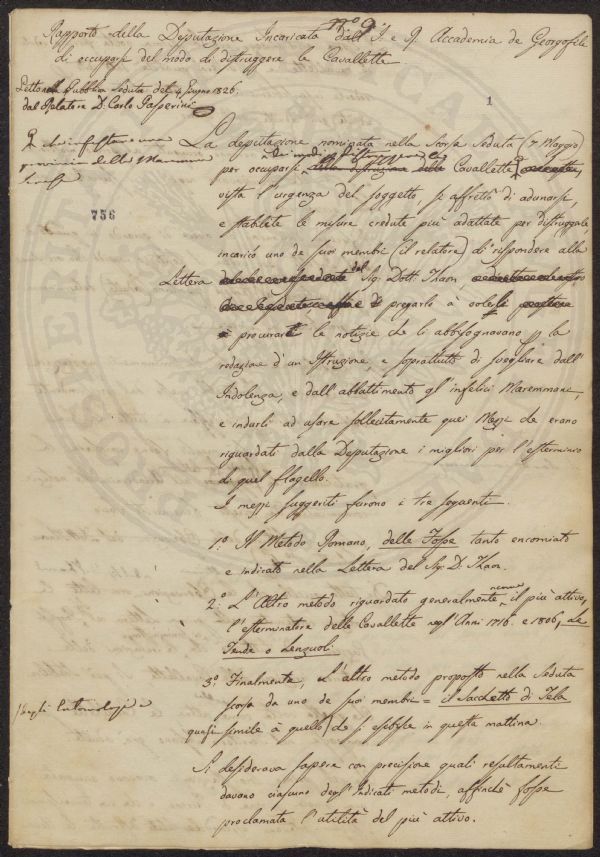 N.° 9
Rapporto della Deputazione Incaricata dall' I. e R. Accademia de Georgofili
di occuparsi del modo di distruggere le Cavallette
Letto nella Pubblica Seduta del 4 Giugno 1826.
dal Relatore D. Carlo Passerini
1
La deputazione nominata nella scorsa Seduta (7 Maggio)
per occuparsi dei modi di distruggere le Cavallette
vista l'urgenza del soggetto si affrettò di adunarsi,
756
e stabilite le misure credute più adattate per distruggerle
incaricò uno de suoi membri (il relatore) di rispondere alla
Lettera del Sig. Dott. Thaon
pregarlo à volerli
procurare le notizie che li abbisognavano p la
redazione d'un Istruzione, e soprattutto di svegliare dall'
Indolenza, e dall'abbattimento gl'infelici Maremmani,
e indurli ad usare sollecitamente quei Mezzi che erano
riguardati dalla Deputazione i migliori per l'esterminio
di quel flagello.
I mezzi suggeriti furono i tre seguenti.
1.° Il Metodo Romano, delle Fosse tanto encomiato
e indicato nella Lettera del Sig. D. Thaon.
2.° L'Altro metodo riguardato generalmente come il più attivo,
l'esterminatore delle Cavallette negl'Anni 1716. e 1806, Le
Tende o Lenzuoli
3.° Finalmente, L'altro metodo proposto nella Seduta
scorsa da uno de suoi membri = il Sacchetto di Tela
quasi simile à quello che si esibisce in questa mattina.
degli Entomologi
Si desiderava sapere con precisione quali resultamenti
davano ciascuno degl'Indicati metodi, affinchè fosse
proclamata l'utilità del più attivo.